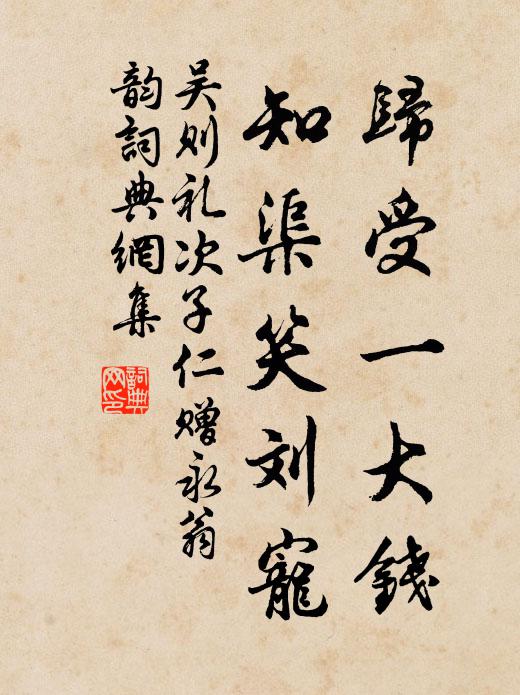 歸受一大錢
知渠笑刘寵
吴则礼次子仁赠永翁
韵詞典網集
詞典网印